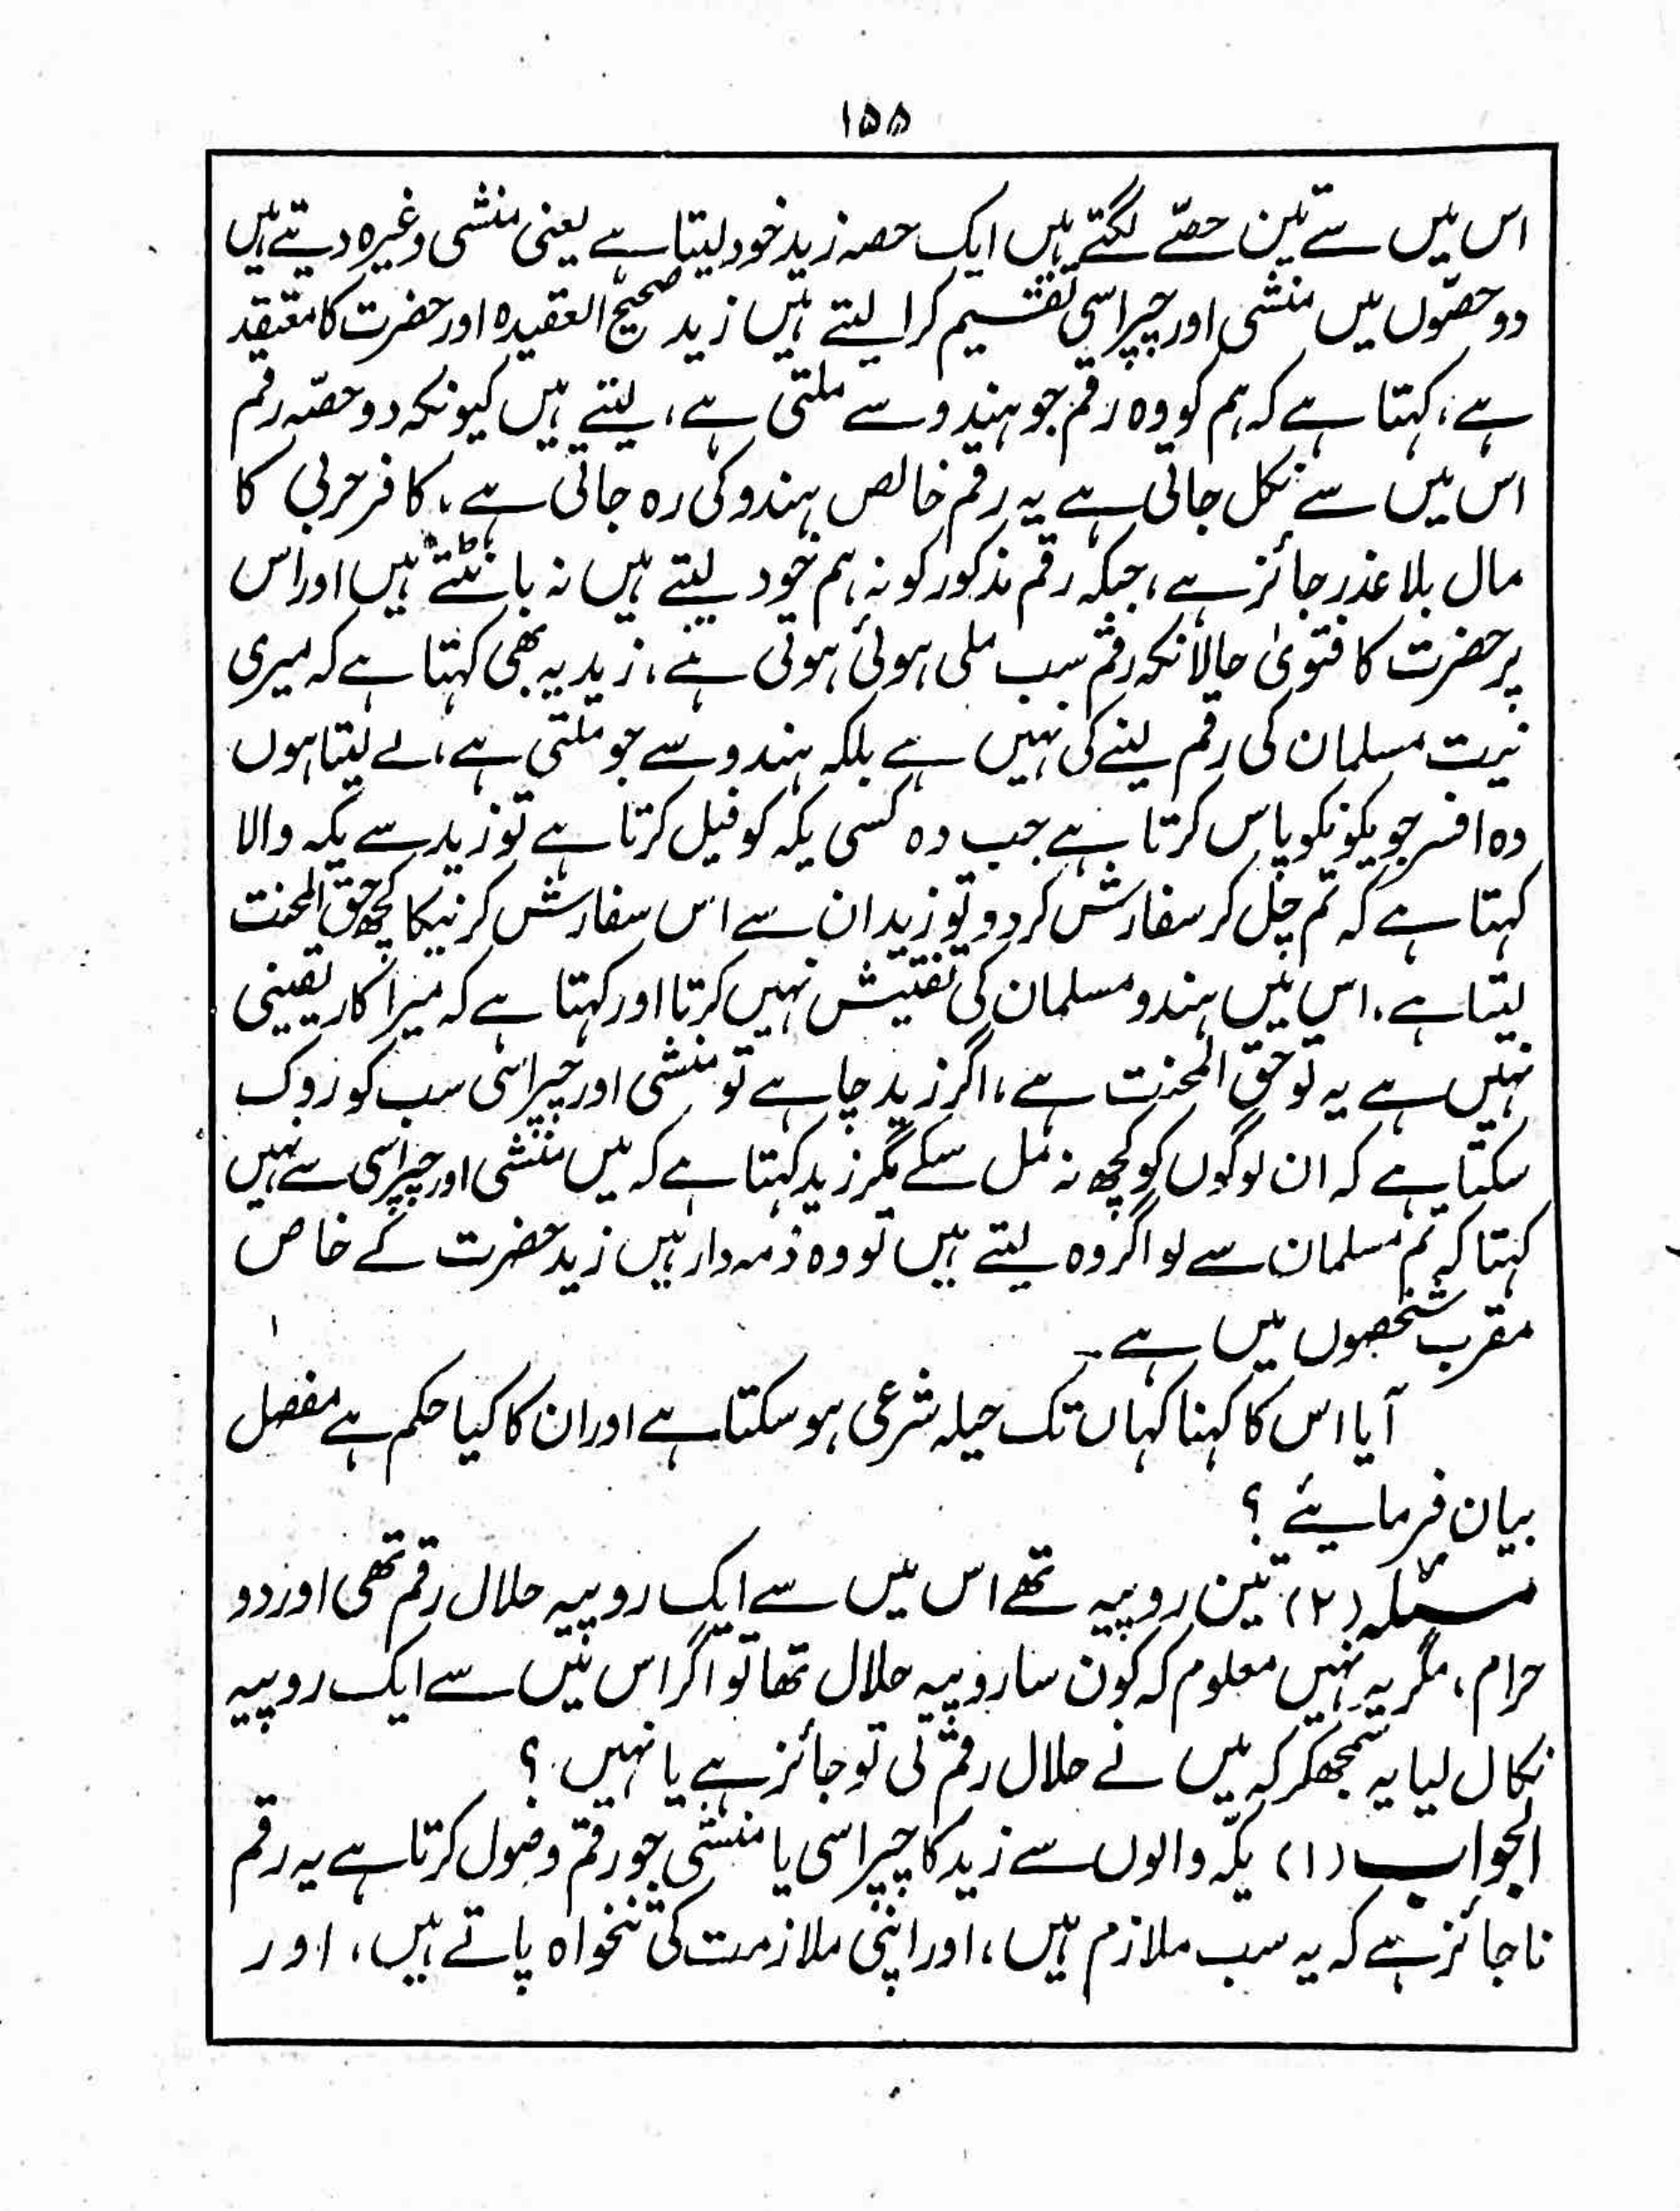 ۱۵۵
اس میں سے تین حصّے لگتے ہیں ایک حصہ زید خود لیتا ہے یعنی منشی وغیرہ دیتے ہیں
دو حصّوں میں منشی اور چپراسی تقسیم کرا لیتے ہیں زید صحیح العقیدہ اور حضرت کا معتقد
ہے، کہتا ہے کہ ہم کو وہ رقم جو ہندو سے ملتی ہے، لیتے ہیں کیونکہ دو حصّہ رقم
اس میں سے نکل جاتی ہے یہ رقم خالص ہندو کی رہ جاتی ہے، کافر حربی کا
مال بلا عذر جائز ہے، جبکہ رقم مذکور کو نہ ہم خود لیتے ہیں نہ بانٹتے ہیں اور اس
پر حضرت کا فتویٰ حالانکہ رقم سب ملی ہوئی ہوتی ہے، زید یہ بھی کہتا ہے کہ میری
نیت مسلمان کی رقم لینے کی نہیں ہے بلکہ ہندو سے جو ملتی ہے، لے لیتا ہوں
وہ افسر جو یکونکو پاس کرتا ہے جب وہ کسی یکہ کو فیل کرتا ہے تو زید سے یکہ والا
کہتا ہے کہ تم چل کر سفارش کر دو تو زید ان سے اس سفارش کرنیکا کچھ حق المحنت
لیتا ہے، اس میں ہندو مسلمان کی تفتیش نہیں کرتا اور کہتا ہے کہ میرا کار یقینی
نہیں ہے یہ تو حق المحنت ہے، اگر زید چاہے تو منشی اور چپراسی سب کو روک
سکتا ہے کہ ان لوگوں کو کچھ نہ مل سکے مگر زید کہتا ہے کہ میں منشی اور چپراسی سے نہیں
کہتا کہ تم مسلمان سے لو اگر وہ لیتے ہیں تو وہ ذمہ دار ہیں زید حضرت کے خاص
مقرب شخصوں میں ہے۔
آیا اس کا کہنا کہاں تک حیلہ شرعی ہو سکتا ہے اور ان کا کیا حکم ہے مفصل
بیان فرمایئے ؟
مسئلہ (۲) تین روپیہ تھے اس میں سے ایک روپیہ حلال رقم تھی اور دو
حرام، مگر یہ نہیں معلوم کہ کون سا روپیہ حلال تھا تو اگر اس میں سے ایک روپیہ
نکال لیا یہ سمجھکر کہ میں نے حلال رقم لی تو جائز ہے یا نہیں ؟
الجواب (۱) یکّہ والوں سے زید کا چپراسی یا منشی جو رقم وصول کرتا ہے یہ رقم
ناجائز ہے کہ یہ سب ملازم ہیں، اور اپنی ملازمت کی تنخواہ پاتے ہیں، اور